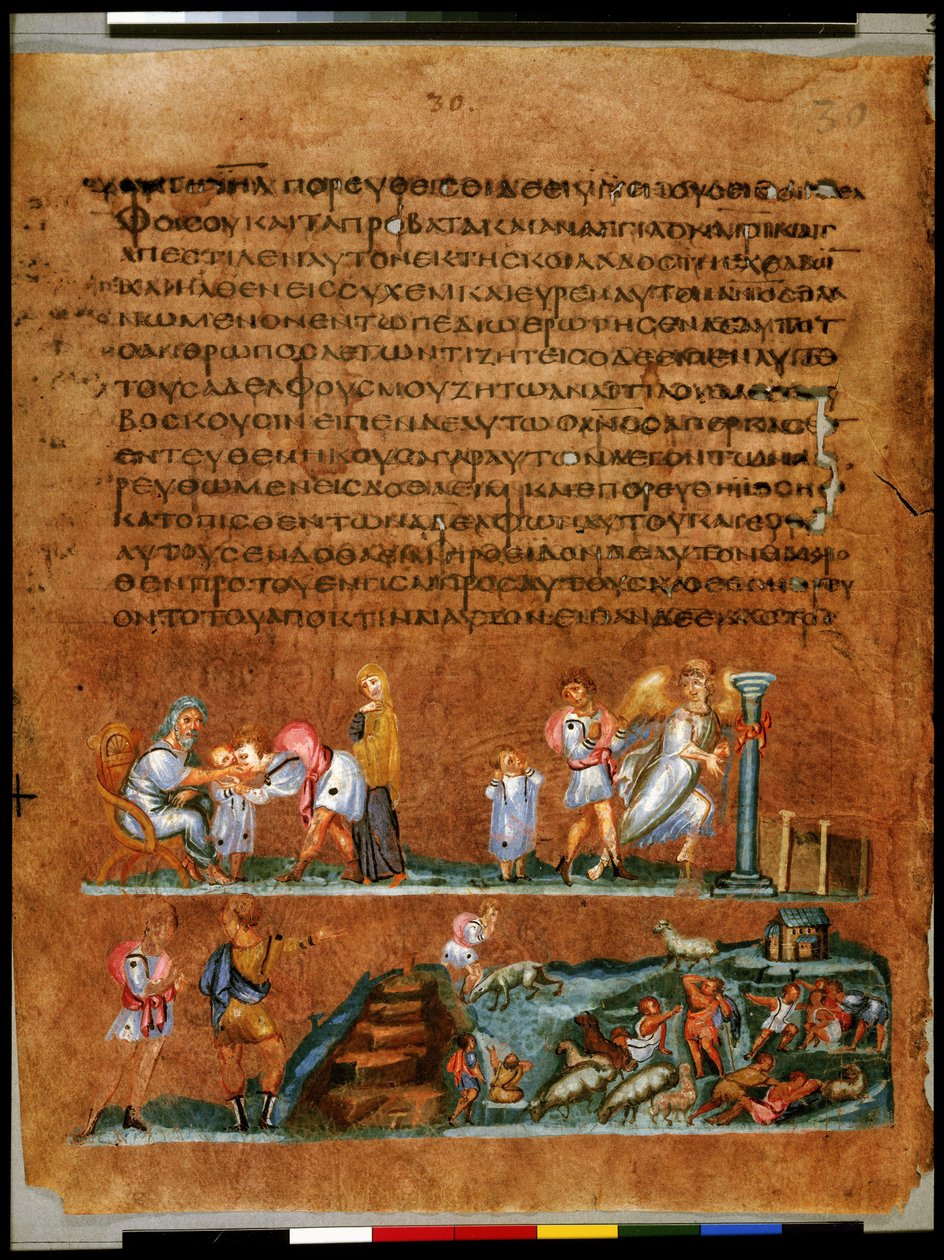 30.
30
ΠΟΡΕΥΘΕΙϹ ΟΙΔΕ ΕΙ
ΦΟΙ ϹΟΥ ΚΑΙ ΤΑ ΠΡΟΒΑΤΑ ΚΑΙ ΑΝΑΓΓΙΛΟΝ
ΑΠΕϹΤΙΛΕΝ ΑΥΤΟΝ ΕΚ ΤΗϹ ΚΟΙΛΑΔΟϹ ΤΗϹ
ΚΑΙ ΗΛΘΕΝ ΕΙϹ ϹΥΧΕΜ ΚΑΙ ΕΥΡΕΝ ΑΥΤΟΝ ΑΝΟϹ ΠΛΑ
ΝΩΜΕΝΟΝ ΕΝ ΤΩ ΠΕΔΙΩ ΕΡΩΤΗϹΕΝ ΔΕ ΑΥΤΟΝ
Ο ΑΝΘΡΩΠΟϹ ΛΕΓΩΝ ΤΙ ΖΗΤΕΙϹ Ο ΔΕ ΕΙΠΕΝ ΑΥΤΩ
ΤΟΥϹ ΑΔΕΛΦΟΥϹ ΜΟΥ ΖΗΤΩ ΑΝΑΓΓΙΛΟΝ
ΒΟϹΚΟΥϹΙΝ ΕΙΠΕΝ ΔΕ ΑΥΤΩ Ο ΑΝΟϹ
ΕΝΤΕΥΘΕΝ ΗΚΟΥϹΑ ΓΑΡ ΑΥΤΩΝ ΛΕΓΟΝΤΩΝ
ΡΕΥΘΩΜΕΝ ΕΙϹ ΔΟΘΑΕΙΜ ΚΑΙ ΕΠΟΡΕΥΘΗ ΙΩϹΗΦ
ΚΑΤΟΠΙϹΘΕΝ ΤΩΝ ΑΔΕΛΦΩΝ ΑΥΤΟΥ ΚΑΙ
ΑΥΤΟΥϹ ΕΝ ΔΟΘΑΕΙΜ ΠΡΟΕΙΔΟΝ ΔΕ ΑΥΤΟΝ ΜΑΚΡΟ
ΘΕΝ ΠΡΟ ΤΟΥ ΕΝΓΙϹΑΙ ΠΡΟϹ ΑΥΤΟΥϹ
ΟΝΤΟ ΤΟΥ ΑΠΟΚΤΙΝΑΙ ΑΥΤΟΝ ΕΙΠΑΝ ΔΕ ΕΚΑϹΤΟϹ